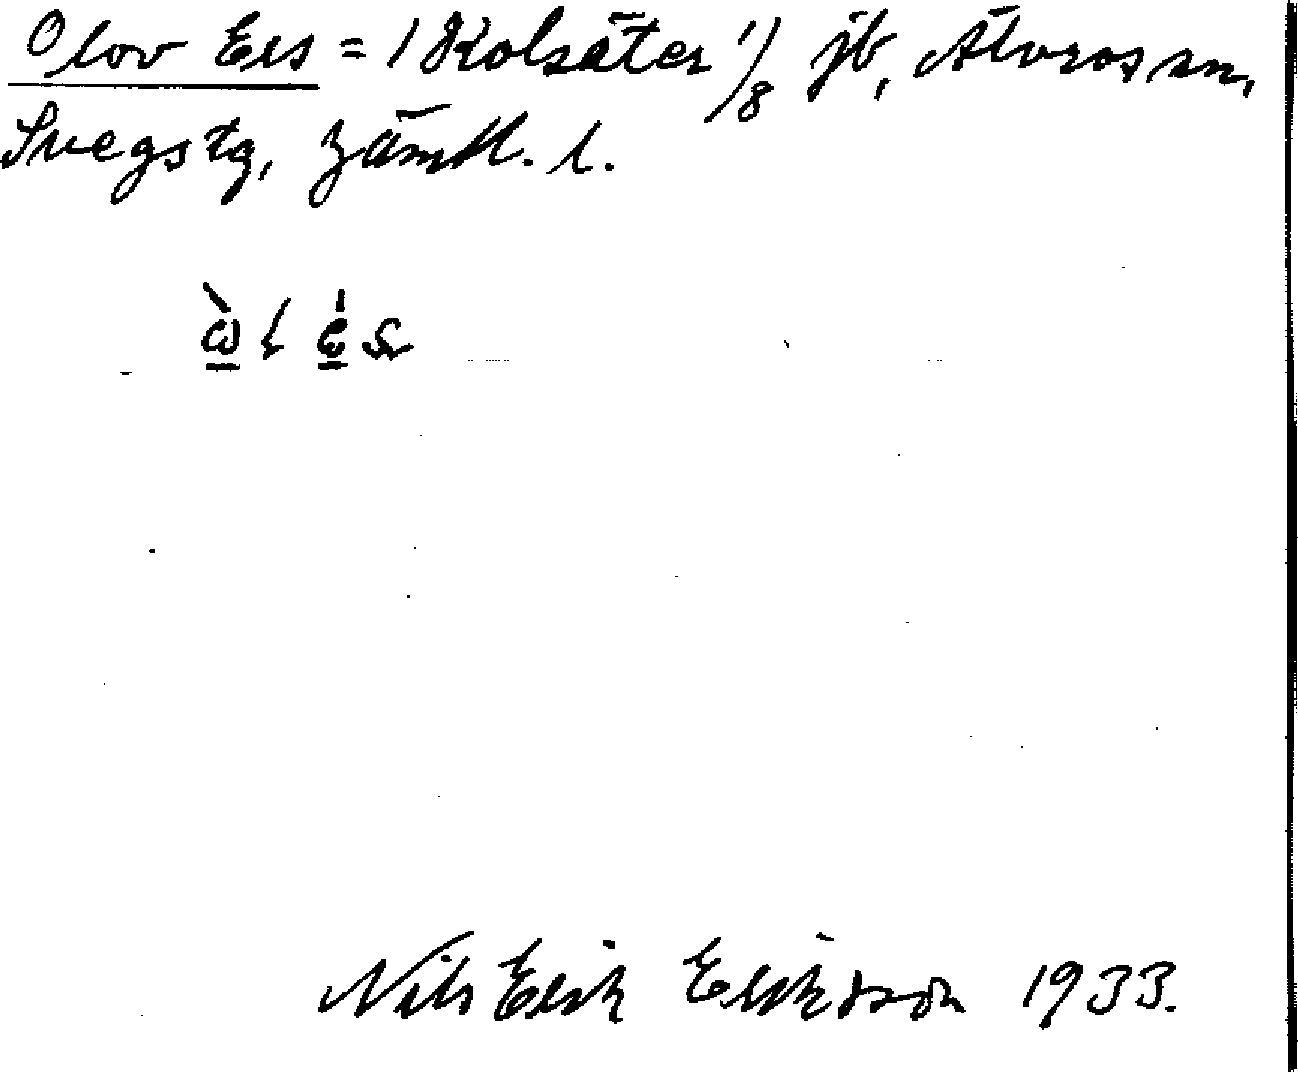 Olov Ers = /Kolsäter 1/8 jb, Älvros sn,
Svegs tg, Jämtl. l.
Nils Erik Eriksson 1933.